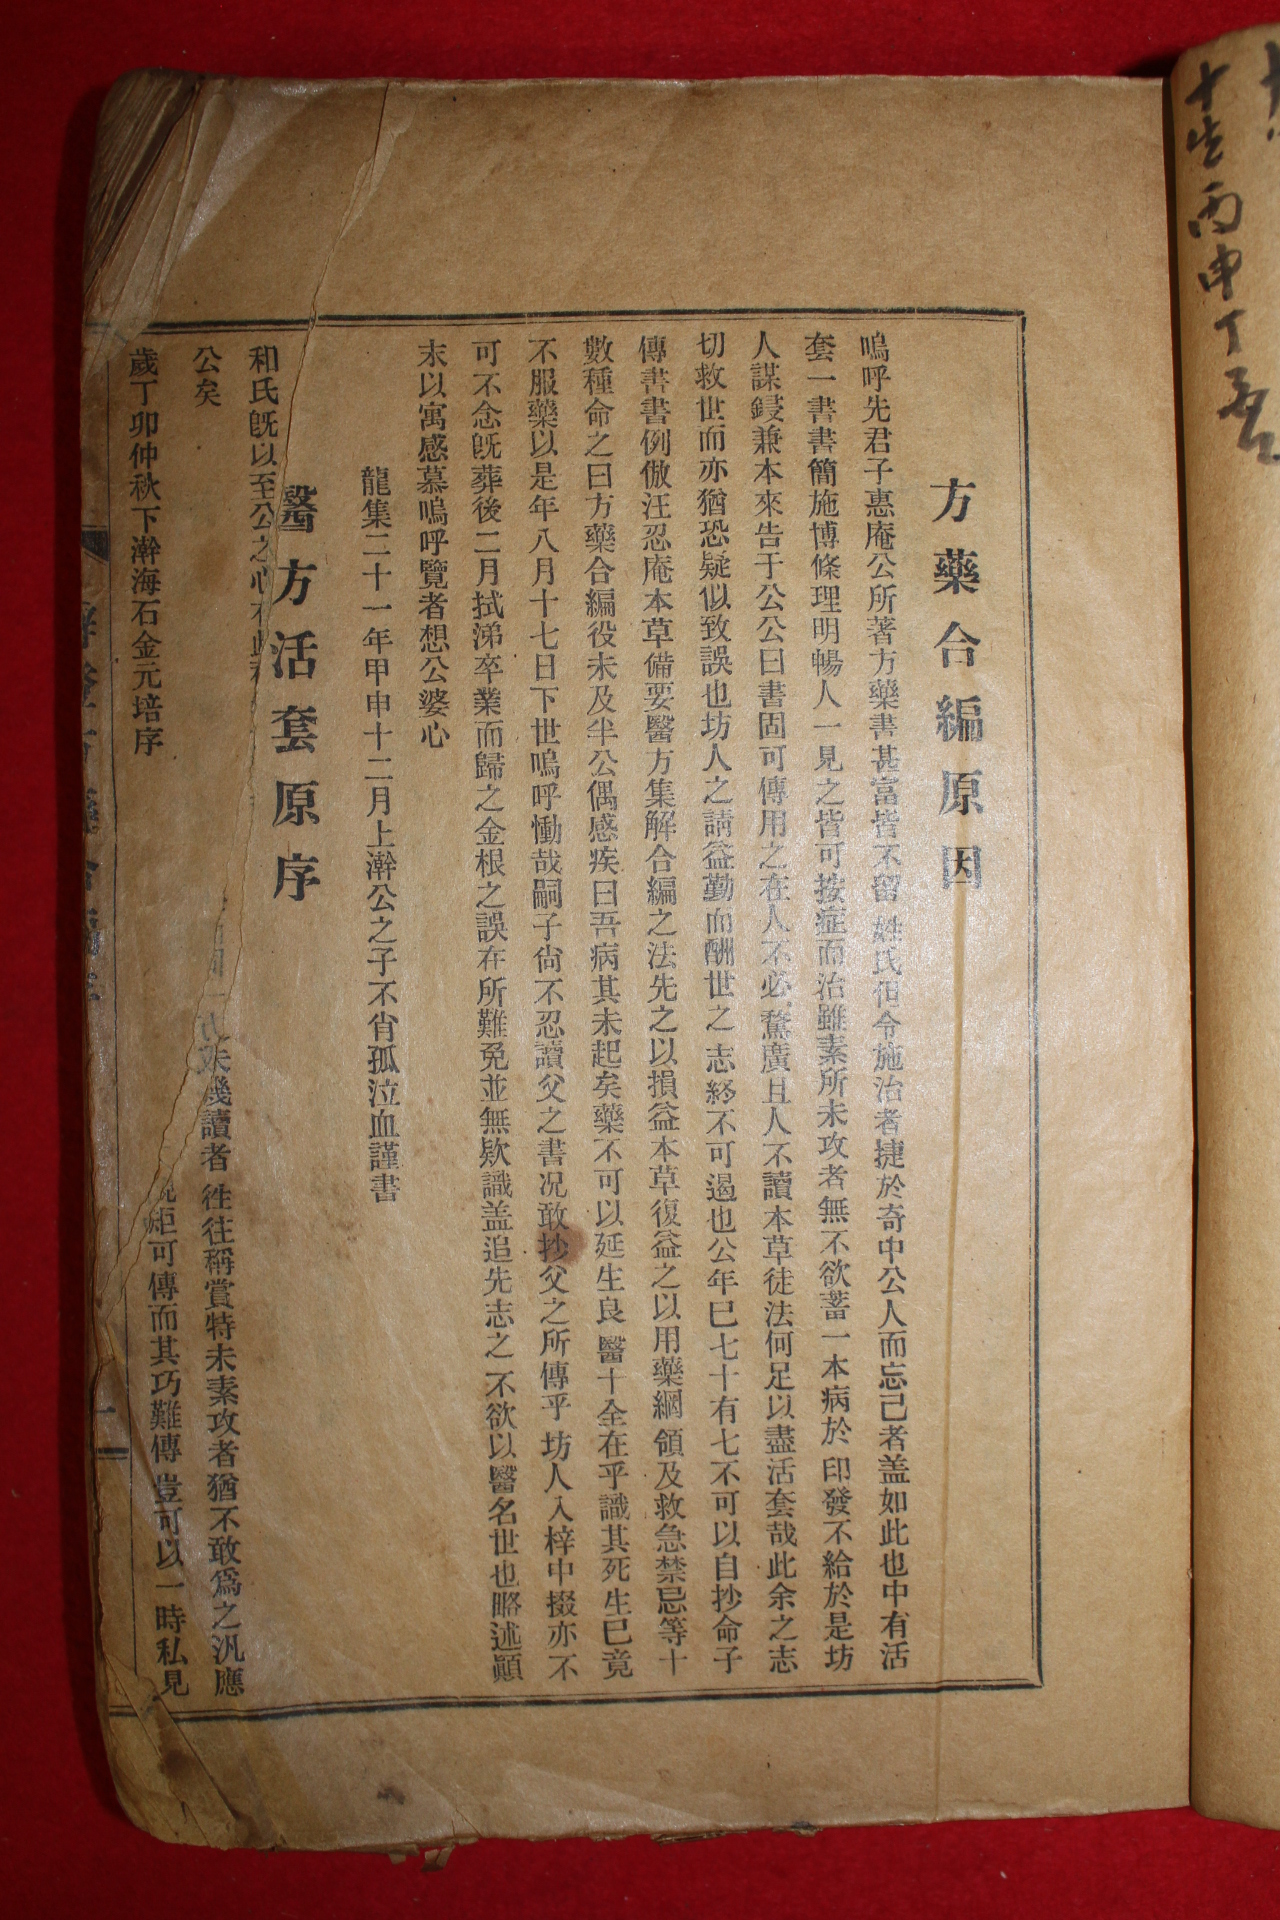 方藥合編原因
嗚呼先君子惠庵公所著方藥書甚富皆不留姓氏但令施治者捷於奇中公人而忘己者盖如此也中有活
套一書書簡施博條理明暢人一見之皆可按症而治雖素所未攻者無不欲蓄一本病於印發不給於是坊
人謀鋟兼本來告于公公曰書固可傳用之在人不必騖廣且人不讀本草徒法何足以盡活套哉此余之志
切救世而亦猶恐疑似致誤也坊人之請益勤而酬世之志終不可遏也公年已七十有七不可以自抄命子
傳書書例倣汪忍庵本草備要醫方集解合編之法先之以損益本草復益之以用藥綱領及救急禁忌等十
數種命之曰方藥合編役未及半公偶感疾曰吾病其未起矣藥不可以延生良醫十全在乎識其死生已竟
不服藥以是年八月十七日下世嗚呼慟哉嗣子尙不忍讀父之書況敢抄父之所傳乎坊人入梓中掇亦不
可不念旣葬後二月拭涕卒業而歸之金根之誤在所難免並無欵識盖追先志之不欲以醫名世也略述顚
末以寓感慕嗚呼覽者想公婆心
龍集二十一年甲申十二月上澣公之子不肖孤泣血謹書
醫方活套原序
未幾讀者徃往稱賞特未素攻者猶不敢爲之汎應
和氏旣以至公之心
矩可傳而其巧難傳豈可以一時私見
公矣
歲丁卯仲秋下澣海石金元培序
一
十生丙申丁